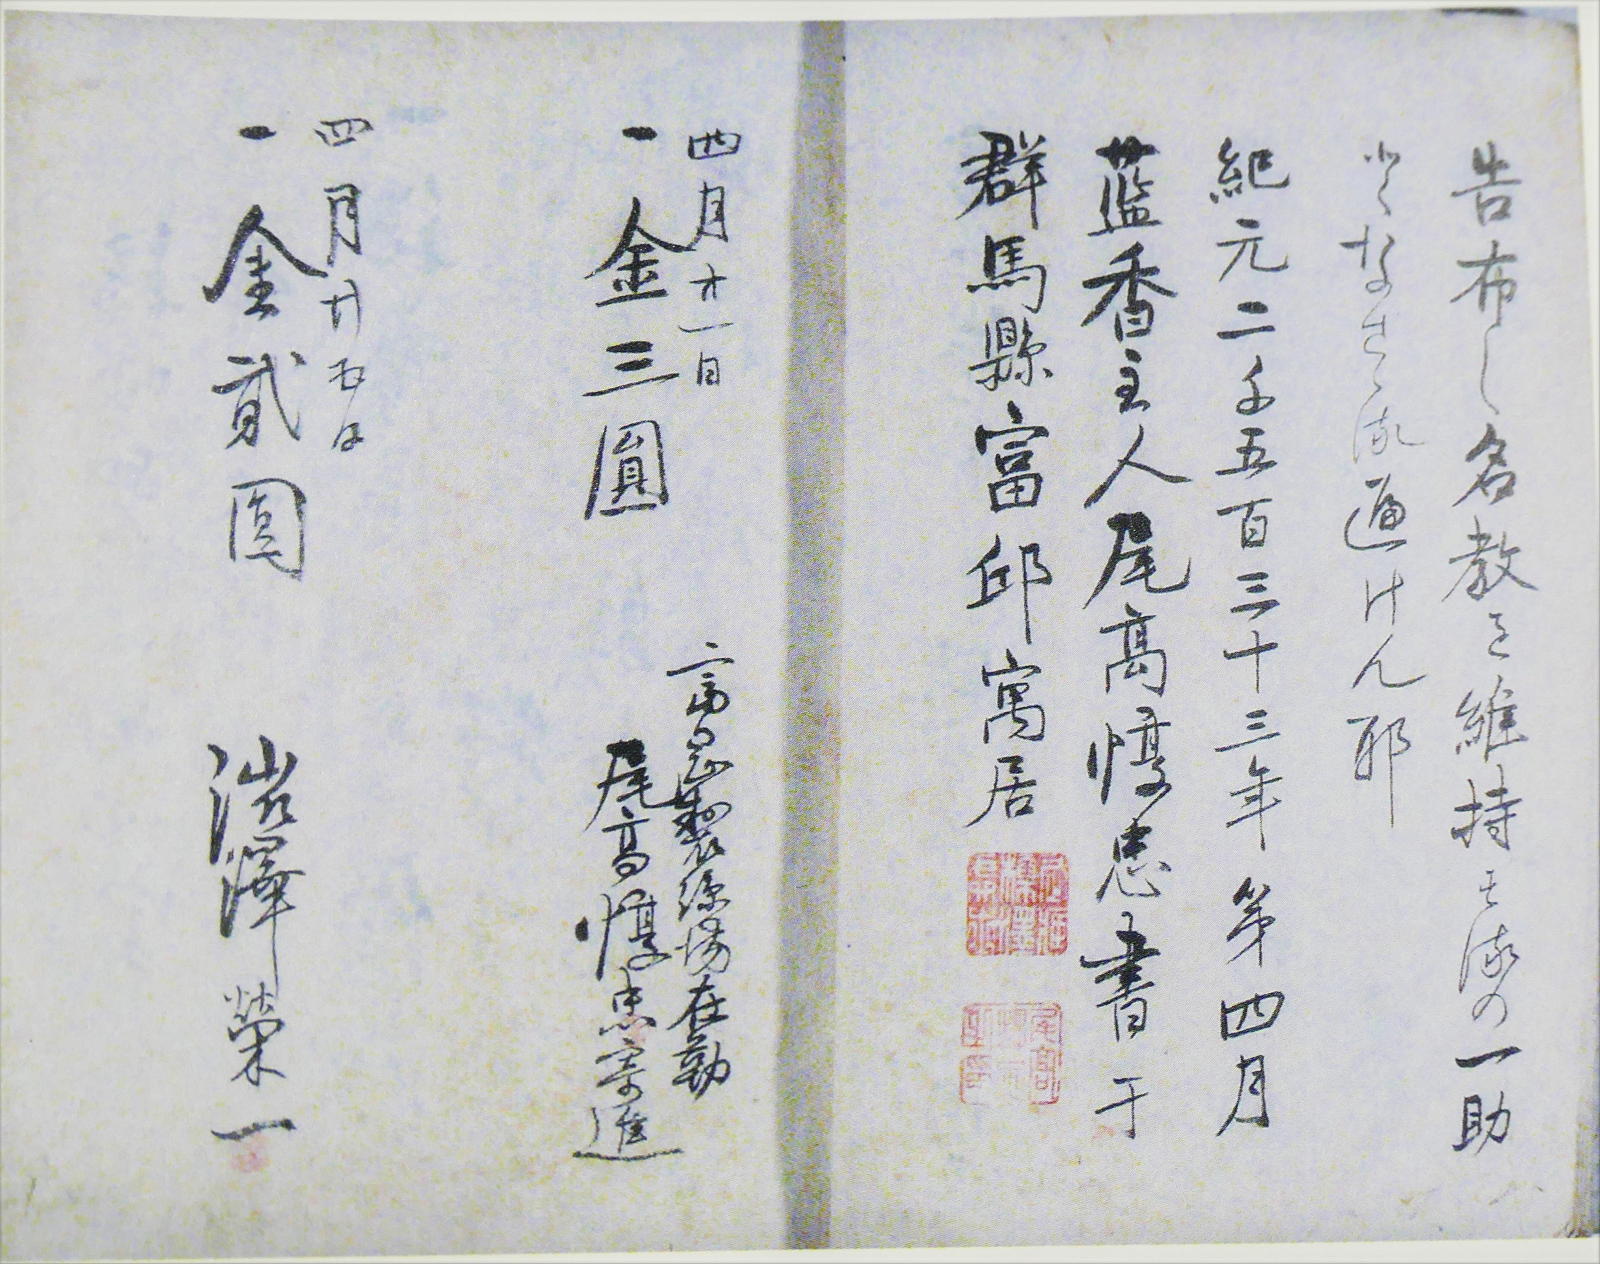 告布し名教を維持する の一助
となさゞる 遍けん耶
紀元二千五百三十三年第四月
藍香主人尾高惇忠書于
群馬縣富邱寓居
四月廿一日
一金三圓
富岡製糸場在勤
尾高惇忠寄進
四月廿五日
一金貳圓
澁澤榮一